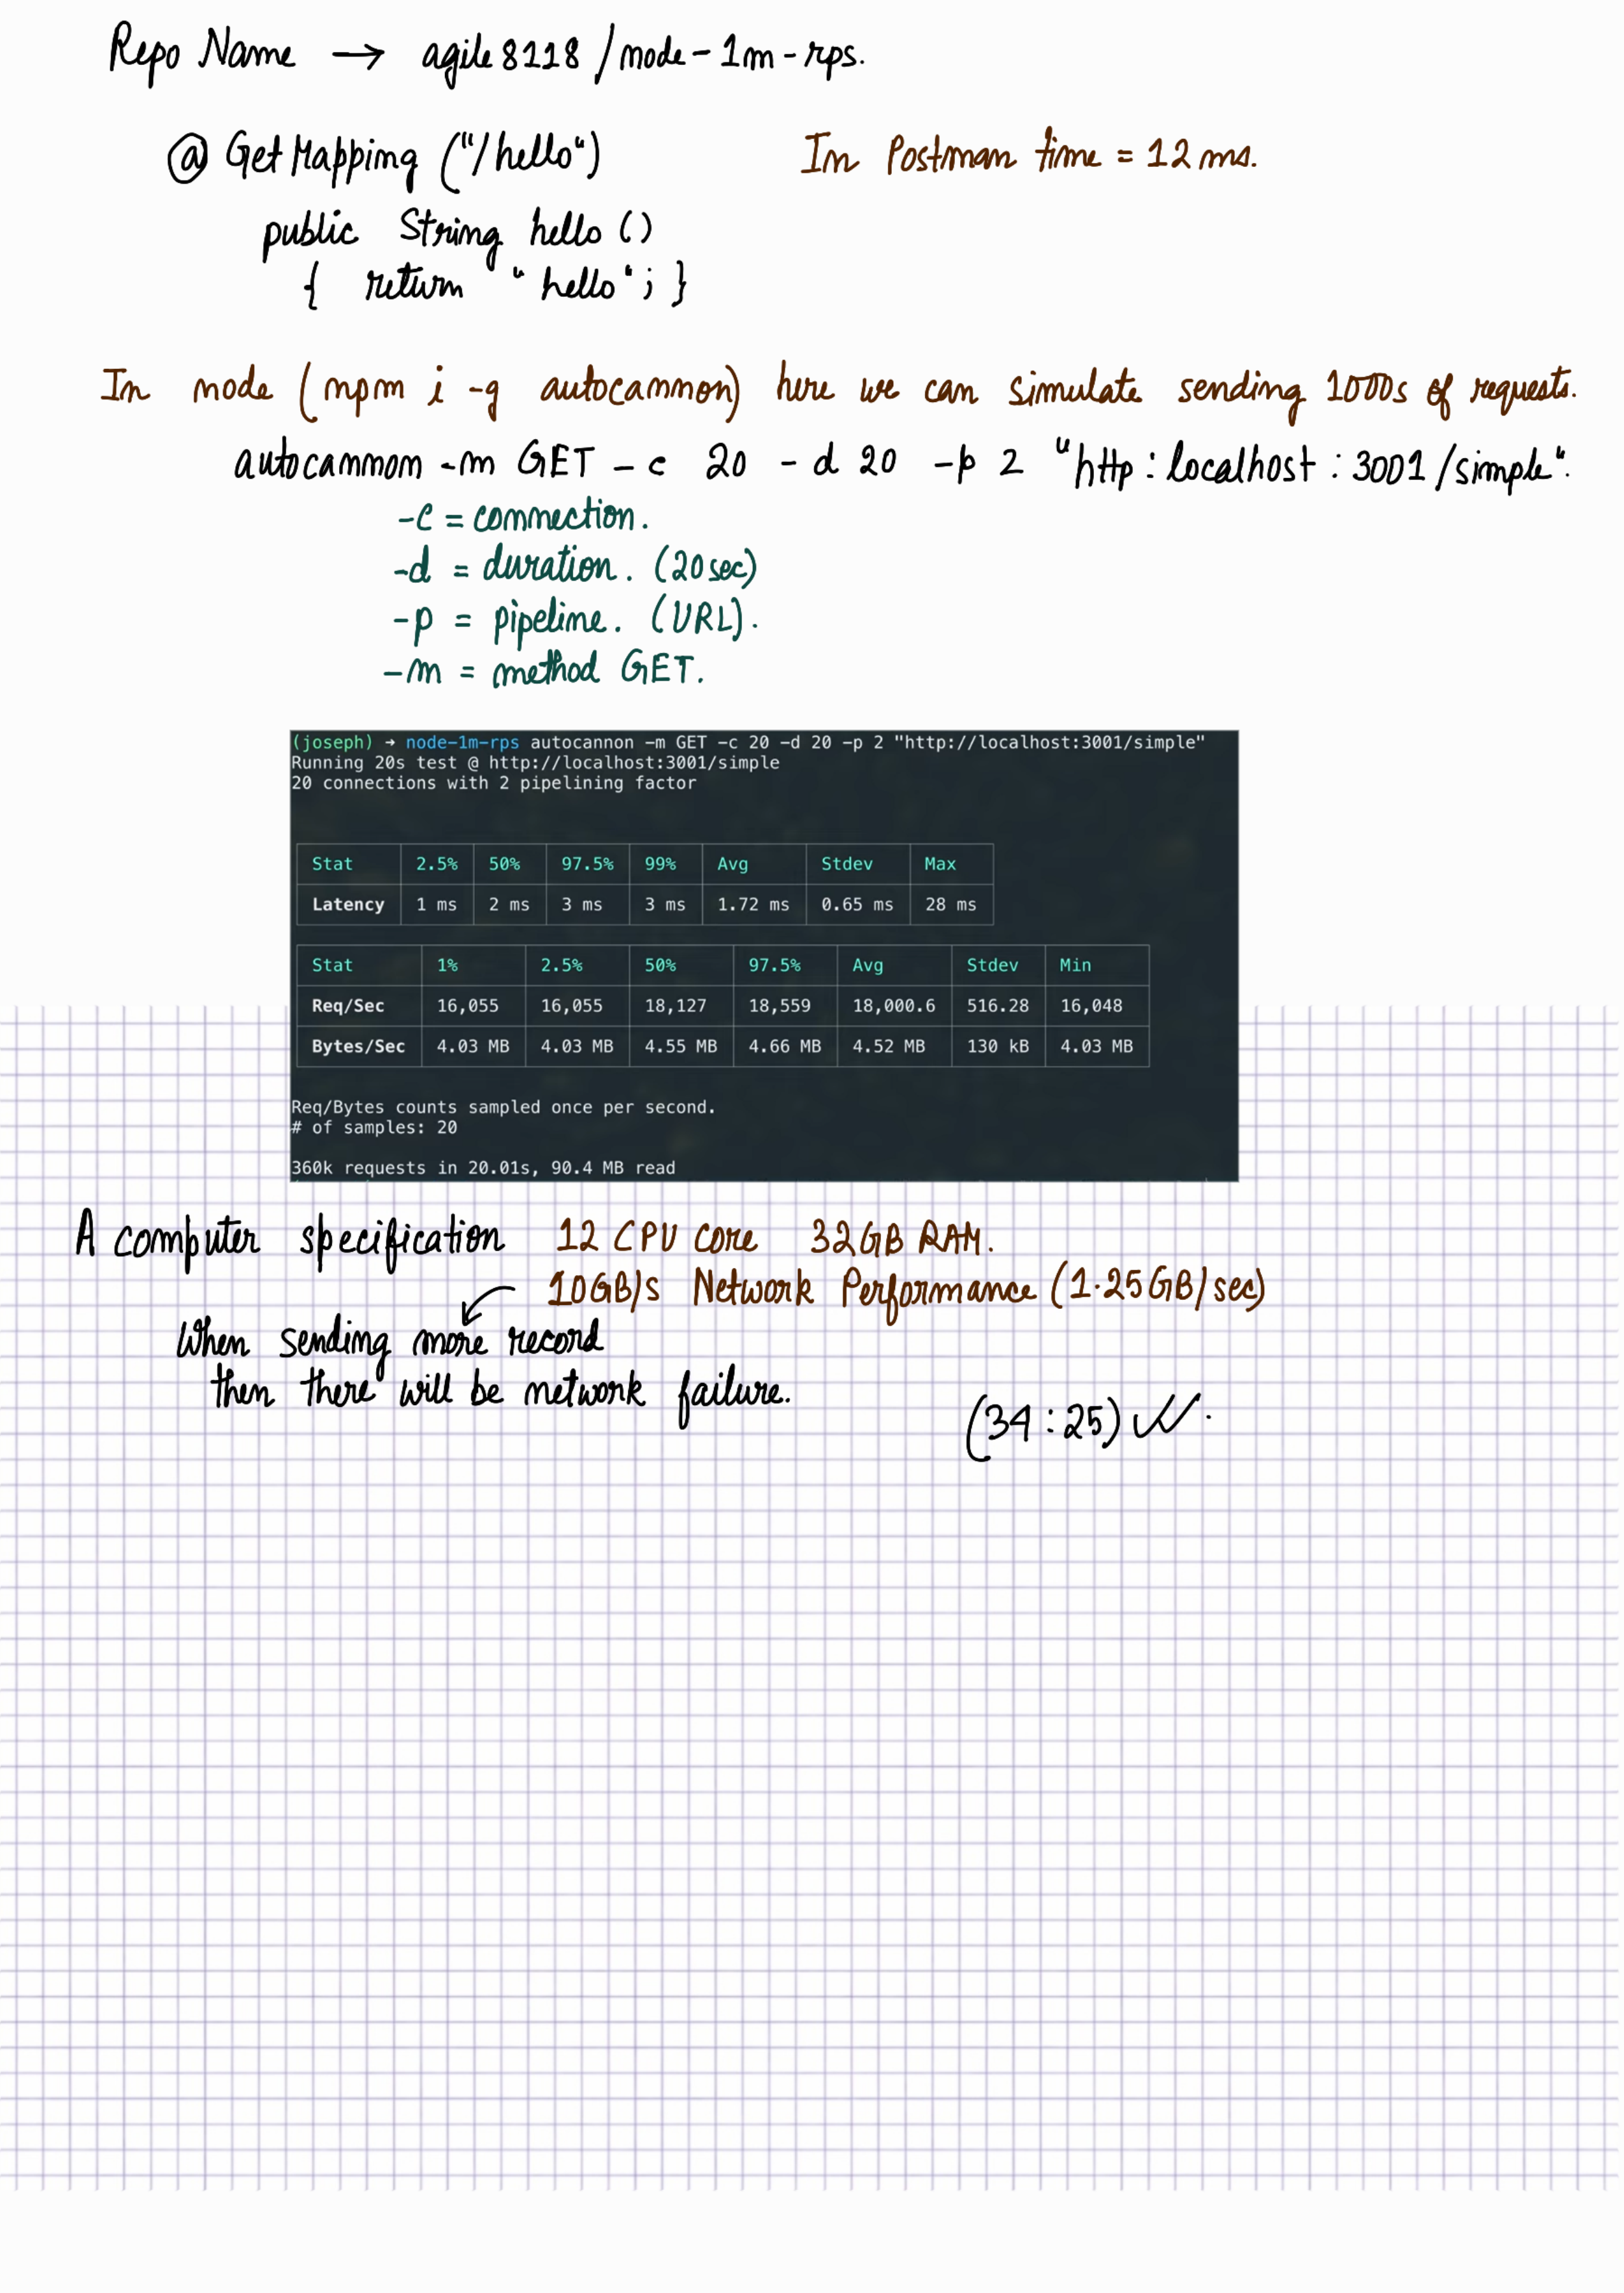 Repo Name → agile8118/node-1m-rps.
@GetMapping ("/hello")
In Postman time = 12 ms.
public String hello ()
{ return "hello"; }
In node (npm i -g autocannon) here we can simulate sending 1000s of requests.
autocannon -m GET -c 20 -d 20 -p 2 "http:localhost:3001/simple".
-c = connection.
-d = duration. (20sec)
-p = pipeline. (URL).
-m = method GET.
(joseph) → node-1m-rps autocannon -m GET -c 20 -d 20 -p 2 "http://localhost:3001/simple"
Running 20s test @ http://localhost:3001/simple
20 connections with 2 pipelining factor
Stat 2.5% 50% 97.5% 99% Avg Stdev Max
Latency 1 ms 2 ms 3 ms 3 ms 1.72 ms 0.65 ms 28 ms
Stat 1% 2.5% 50% 97.5% Avg Stdev Min
Req/Sec 16,055 16,055 18,127 18,559 18,000.6 516.28 16,048
Bytes/Sec 4.03 MB 4.03 MB 4.55 MB 4.66 MB 4.52 MB 130 kB 4.03 MB
Req/Bytes counts sampled once per second.
# of samples: 20
360k requests in 20.01s, 90.4 MB read
A computer specification 12 CPU Core 32GB RAM.
10GB/s Network Performance (1.25GB/sec)
When sending more record
then there will be network failure.
(34:25)